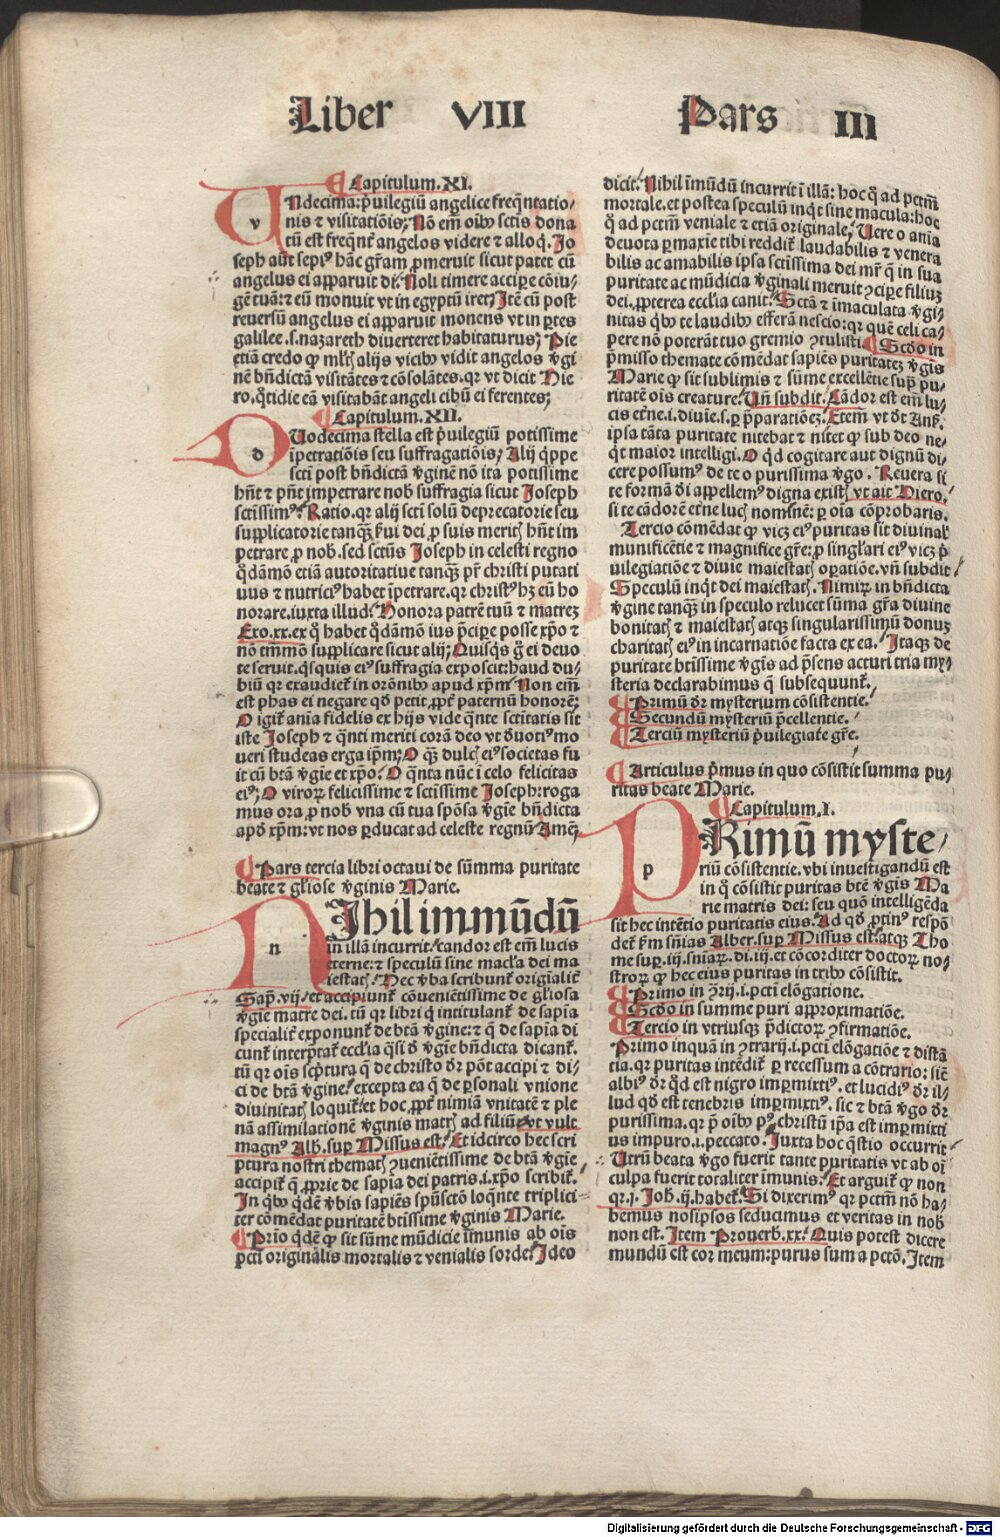 Liber VIII
Pars III
Capitulum .XI.
VNdecima: p̃uilegiũ angelice freq̃ntatio⸗
nis ⁊ visitatiõis; Nõ em̃ oĩbꝰ sctĩs dona
tũ est freq̃nt̃ angelos videre ⁊ alloq̃. Jo
seph aũt sepiꝰ hãc gr̃am ꝓmeruit sicut patet cũ
angelus ei apparuit dt̃. Noli timere accipe cõiu⸗
gẽ tuã: ⁊ eũ monuit vt in egyptũ iret; Jtẽ cũ post
reuersũ angelus ei apparuit monens vt in ꝑtes
galilee .s. nazareth diuerteret habitaturus; Pie
etiã credo ꝙ ml̃tꝭ alijs vicibꝰ vidit angelos ṽgi
nẽ bñdictã visitãtes ⁊ cõsolãtes. qr vt dicit Hie
ro. q̃tidie eã visitabãt angeli cibũ ei ferentes;
Capitulum .XII.
DUodecima stella est p̃uilegiũ potissime
ĩpetratiõis seu suffragatiõis; Alij q̃ppe
sctĩ post bñdictã ṽginẽ nõ ita potissime
hñt ⁊ pñt impetrare nob̃ suffragia sicut Joseph
sctissimꝰ. Ratio. qr alij sctĩ solũ deprecatorie seu
supplicatorie tanqᷓꝫ ẜui dei ꝓ suis meritꝭ hñt im
petrare ꝓ nob̃. sed sctũs Joseph in celesti regno
q̃dãmõ etiã autoritatiue tanqᷓꝫ pr̃ christi putati
uus ⁊ nutriciꝰ habet ĩpetrare. qr christꝰ hꝫ eũ ho
norare. iuxta illud. Honora patrẽ tuũ ⁊ matreꝫ
Exo. xx. ex q̃ habet q̃dãmõ ius p̃cipe posse xp̃o ⁊
nõ tm̃mõ supplicare sicut alij; Quisq̃s g̃ ei deuo
te seruit. q̃squis eiꝰ suffragia exposcit: haud du⸗
biũ qr exaudiet̃ in orõnibꝰ apud xp̃m. Non em̃
est phas ei negare qd̃ petit. ꝓpt̃ paternũ honorẽ;
O igit̃ aĩa fidelis ex hijs vide q̃nte sctitatis sit
iste Joseph ⁊ q̃nti meriti corã deo vt d̃uotiꝰ mo
ueri studeas erga ip̃m; O qᷓꝫ dulcꝭ eiꝰ societas fu
it cũ btã ṽgie et xp̃o. O q̃nta nũc ĩ celo felicitas
eiꝰ; O viroꝝ felicissime ⁊ sctissime Joseph: roga
mus ora ꝓ nob̃ vna cũ tua spõsa ṽgie bñdicta
apd̃ xp̃m: vt nos ꝑducat ad celeste regnũ Amẽ;
Pars tercia libri octaui de sũmma puritate
beate ⁊ gl̃iose ṽginis Marie.
NJhil immũdũ
in illã incurrit. candor est em̃ lucis
eterne: ⁊ speculũ sine macl̃a dei ma
iestatꝭ. Hec ṽba scribunt̃ origĩalit̃
Sap̃. vij. et accipiunt̃ cõuenĩentissime de gl̃iosa
ṽgie matre dei. tũ qr libri q̃ intitulant̃ de sapia
specialit̃ exponunt̃ de btã ṽgine: ⁊ q̃ de sapia di
cunt̃ interp̃tat̃ eccl̃ia q̃si d̃ ṽgie bñdicta dicant̃.
tũ qr oĩs scp̃tura q̃ de christo dr̃ põt accipi ⁊ di⸗
ci de btã ṽgine. excepta ea q̃ de ꝑsonali vnione
diuinitatꝭ loquit̃. et hoc ꝓpt̃ nimiã vnitatẽ ⁊ ple
nã assimilationẽ ṽginis matrꝭ ad filiũ. vt vult
magnꝰ Alb̃. suꝑ Missus est. Et idcirco hec scri
ptura nostri thematꝭ ꝯuenĩẽtissime de btã ṽgie,
accipit̃ q̃ ꝓprie de sapia dei patris .i. xp̃o scribit̃.
Jn q̃bꝰ q̃dẽ ṽbis sapiẽs spũsctõ loq̃nte triplici⸗
ter cõmẽdat puritatẽ btissime ṽginis Marie.
Prĩo q̃dẽ ꝙ sit sũme mũdicie ĩmunis ab oĩs
pctĩ originalis mortalis ⁊ venialis sorde. Jdeo
dicit. Nihil ĩmũdũ incurrit ĩ illã: hoc q̃ ad pctm̃
mortale. et postea speculũ inq̃t sine macula: hoc
q̃ ad pctm̃ veniale ⁊ etiã originale; Uere o aĩa
deuota ꝑmaxĩe tibi reddit̃ laudabilis ⁊ venera
bilis ac amabilis ipsa sctissima dei mr̃ q̃ in sua
puritate ac mũdicia ṽginali meruit ꝯcipe filiuꝫ
dei. ꝓpterea eccl̃ia canit. Sctã ⁊ ĩmaculata ṽgi⸗
nitas q̃bꝰ te laudibꝰ efferã nescio: qr quẽ celi ca⸗
pere nõ poterãt tuo gremio ꝯtulisti. Scd̃o in
p̃misso themate cõmẽdat sapiẽs puritateꝫ ṽgis
Marie ꝙ sit sublimis ⁊ sũme excellẽtie suꝑ pu⸗
ritatẽ oĩs creature. Uñ subdit. Cãdor est em̃ lu⸗
cis etñe .i. diuĩe .s. ꝑ p̃parationẽꝫ. Etem̃ vt dt̃ Ans̃.
ipsa tãta puritate nitebat ⁊ nitet ꝙ sub deo ne⸗
q̃t maior intelligi. O qd̃ cogitare aut dignũ di⸗
cere possumꝰ de te o purissima ṽgo. Reuera si
te formã d̃i appellemꝰ digna existꝭ vt ait Hiero.
si te cãdorẽ etñe lucꝭ nomĩnẽ: ꝑ oĩa cõprobaris.
Tercio cõmẽdat ꝙ vicꝫ eiꝰ puritas sit diuinaꝭ
munificẽtie ⁊ magnifice gr̃e: ꝓ singl̃ari eiꝰ vicꝫ p̃
uilegiatiõe ⁊ diuĩe maiestatꝭ oꝑatiõe. vñ subdit
Speculũ inq̃t dei maiestatꝭ. Nimiꝝ in bñdicta
ṽgine tanqᷓꝫ in speculo relucet sũma gr̃a diuine
bonitatꝭ ⁊ maiestatꝭ atqꝫ singularissimũ donuꝫ
charitatꝭ eiꝰ in incarnatiõe facta ex ea. Jtaqꝫ de
puritate btissime ṽgis ad p̃sens acturi tria my⸗
steria declarabimus q̃ subsequunt̃.
Primũ dr̃ mysterium cõsistentie.
Secundũ mysteriũ p̃cellentie.
Terciũ mysteriũ p̃uilegiate gr̃e.
Articulus p̃mus in quo cõsistit summa pu⸗
ritas beate Marie.
Capitulum .I.
PRimũ myste⸗
riũ cõsistentie. vbi inuestigandũ est
in q̃ cõsistit puritas btẽ ṽgis Ma
rie matris dei: seu quõ intelligẽda
sit hec intẽtio puritatis eius. Ad qd̃ ꝓtinꝰ respõ
det̃ ẜm sñias Alber. suꝑ Missus est. atqꝫ Tho
me suꝑ .iij. sniaꝝ. di. iij. et cõcorditer doctoꝝ no⸗
stroꝝ ꝙ hec eius puritas in tribꝰ cõsistit.
Primo in ꝯrij .i. pctĩ elõgatione.
Scd̃o in summe puri approximatiõe.
Tercio in vtriusqꝫ p̃dictoꝝ ꝯfirmatiõe.
Primo inquã in ꝯtrarij .i. pctĩ elõgatiõe ⁊ distã
tia. qr puritas intẽdit̃ ꝑ recessum a cõtrario: siẽ
albiꝰ dr̃ q̃d est nigro impmixtiꝰ. et lucidiꝰ dr̃ il⸗
lud qd̃ est tenebris impmixtiꝰ. sic ⁊ btã ṽgo dr̃
purissima. qr p̃ oĩbꝰ pꝰ christũ ip̃a est impmixti
us impuro .i. peccato. Juxta hoc q̃stio occurrit
Utrũ beata ṽgo fuerit tante puritatis vt ab oĩ
culpa fuerit totaliter ĩmunis. Et arguit̃ ꝙ non
qr .j. Joh̃. ij. habet̃. Si dixerimꝰ qr pctm̃ nõ ha⸗
bemus nosipsos seducimus et veritas in nob̃
non est. Jtem Prouerb̃. xx. Quis potest dicere
mundũ est cor meum: purus sum a pctõ. Jtem
Digitalisierung gefördert durch die Deutsche Forschungsgemeinschaft - DFG